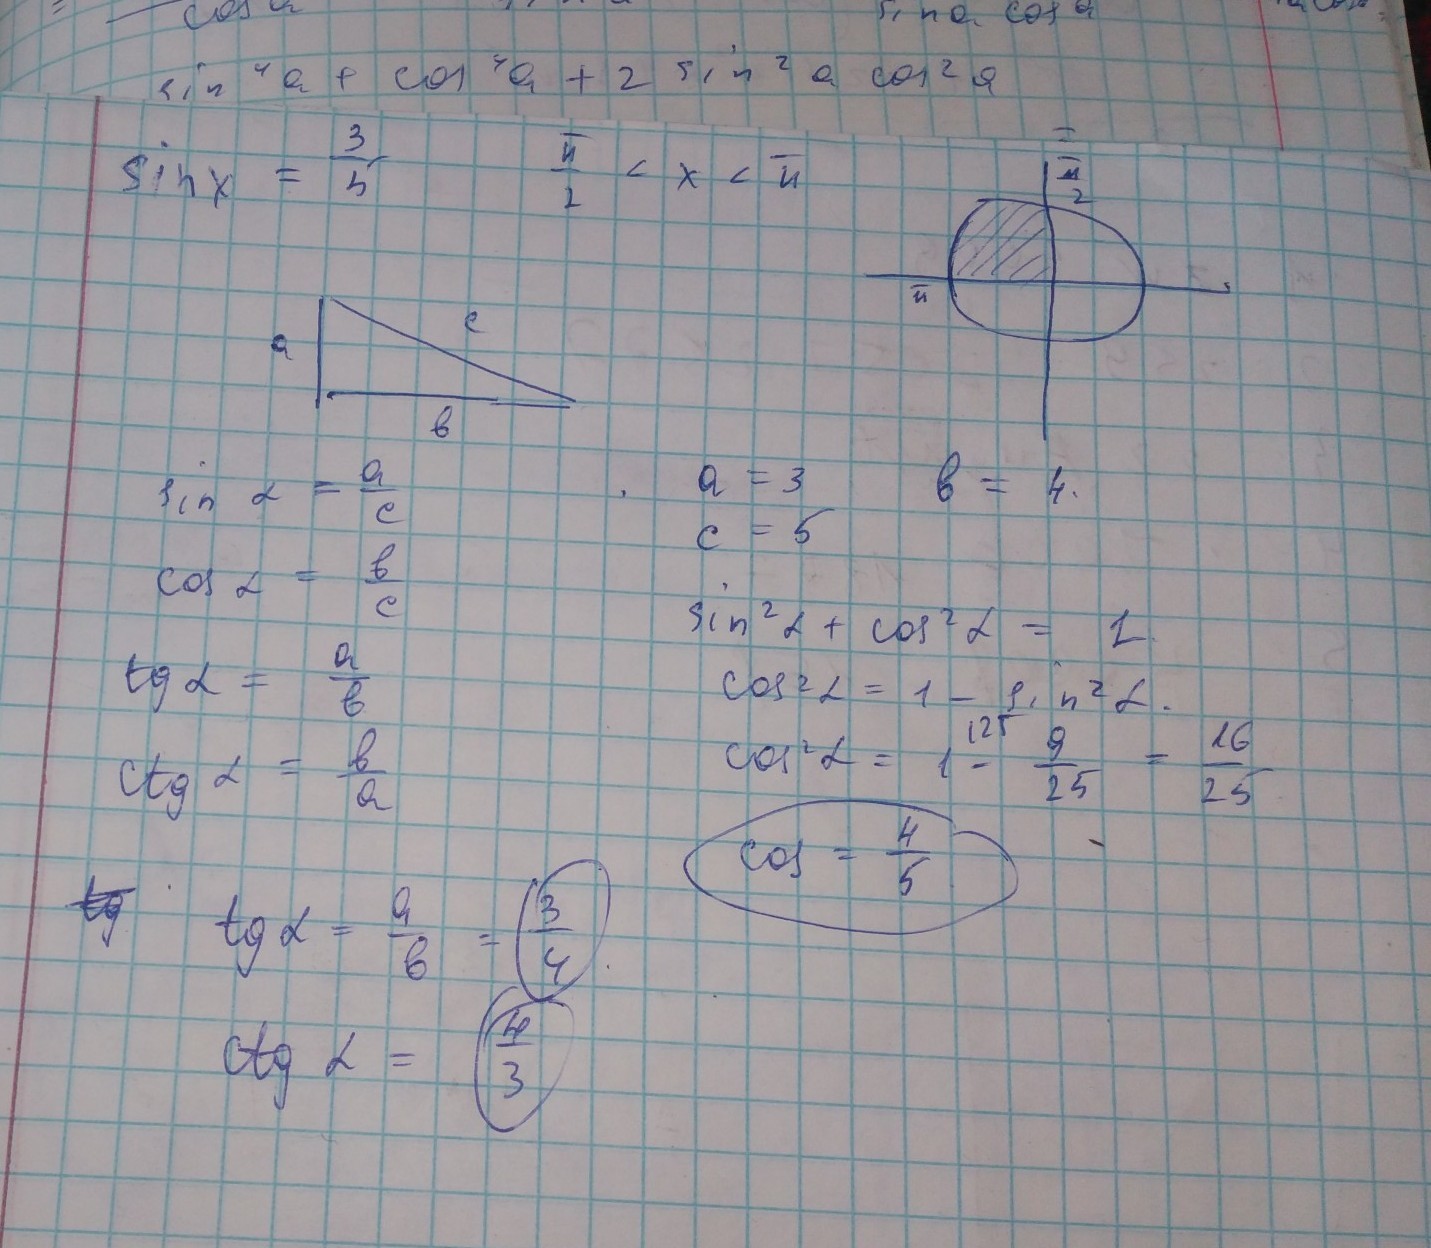 cos a
sin a cos a
sin⁴a + cos⁴a + 2 sin²a cos²a
sin x = 3/5    π/2 < x < π
π/2
π
a
c
в
sin α = a/c    a = 3    в = 4.
c = 5
cos α = в/c
sin²α + cos²α = 1
tg α = a/в    cos²α = 1 - sin²α.
ctg α = в/a    cos²α = 1 - 9/25 = 16/25
cos = 4/5
tg α = a/в = 3/4
ctg α = 4/3